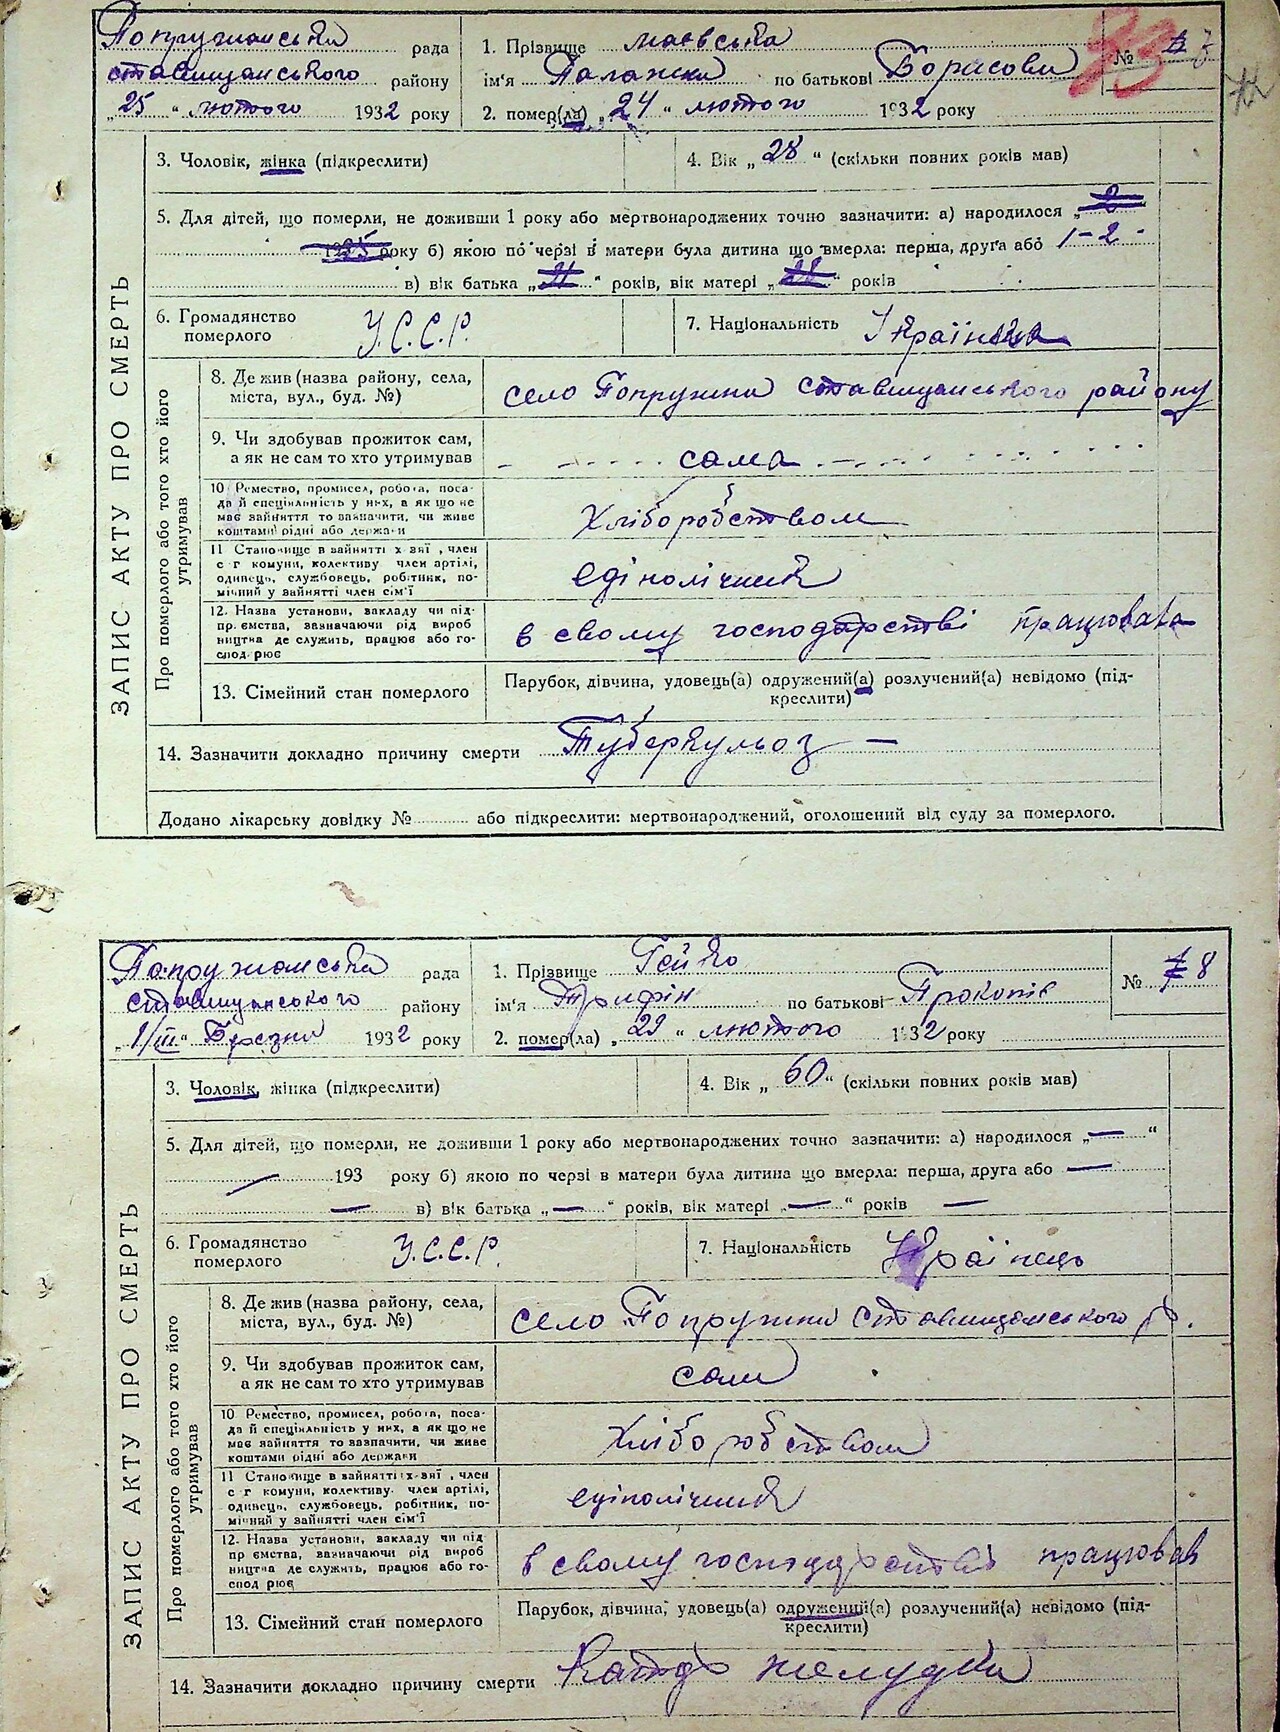 Попружанська рада 1. Прізвище Маєвська №
ставищанського району ім'я Палажка по батькові Борасови
„25“ лютого 1932 року 2. помер(ла) „24“ лютого 1932 року
ЗАПИС АКТУ ПРО СМЕРТЬ
3. Чоловік, жінка (підкреслити) 4. Вік „28“ (скільки повних років мав)
5. Для дітей, що померли, не доживши 1 року або мертвонароджених точно зазначити: а) народилося „
року б) якою по черзі в матери була дитина що вмерла: перша, друга або 1-2-
в) вік батька „ “ років, вік матері „ “ років
6. Громадянство померлого У.С.С.Р. 7. Національність Українка
Про померлого або того хто його утримував
8. Де жив (назва району, села,
міста, вул., буд. №) село Попружни ставищанського району
9. Чи здобував прожиток сам,
а як не сам то хто утримував сама
10 Ремество, промисел, робота, поса-
да й спеціяльність у них, а як що не
має зайняття то зазначити, чи живе
коштами рідні або держави Хліборобством
11 Становище в зайнятті х-вяї, член
с г комуни, колективу член артілі,
одинець, службовець, робітник, по-
мічний у зайнятті член сім'ї едінолічний
12. Назва установи, закладу чи під-
пр ємства, зазначаючи рід вироб
ництва де служить, працює або го-
спод рює в свому господарстві працювала
13. Сімейний стан померлого Парубок, дівчина, удовець(а) одружений(а) розлучений(а) невідомо (під-
креслити)
14. Зазначити докладно причину смерти Туберкульоз —
Додано лікарську довідку № або підкреслити: мертвонароджений, оголошений від суду за померлого.
Попружанська рада 1. Прізвище Гейко № 8
ставищанського району ім'я Трифін по батькові Прокопів
„1/III“ Березня 1932 року 2. помер(ла) „29“ лютого 1932 року
ЗАПИС АКТУ ПРО СМЕРТЬ
3. Чоловік, жінка (підкреслити) 4. Вік „60“ (скільки повних років мав)
5. Для дітей, що померли, не доживши 1 року або мертвонароджених точно зазначити: а) народилося „—“
— 193 року б) якою по черзі в матери була дитина що вмерла: перша, друга або —
— в) вік батька „—“ років, вік матері „—“ років —
6. Громадянство померлого У.С.С.Р. 7. Національність Українець
Про померлого або того хто його утримував
8. Де жив (назва району, села,
міста, вул., буд. №) село Попружни ставищанського р.
9. Чи здобував прожиток сам,
а як не сам то хто утримував сам
10 Ремество, промисел, робота, поса-
да й спеціяльність у них, а як що не
має зайняття то зазначити, чи живе
коштами рідні або держави Хліборобством
11 Становище в зайнятті х-вяї, член
с г комуни, колективу член артілі,
одинець, службовець, робітник, по-
мічний у зайнятті член сім'ї єдінолічний
12. Назва установи, закладу чи під
пр ємства, зазначаючи рід вироб
ництва де служить, працює або го-
спод рює в свому господарстві працював
13. Сімейний стан померлого Парубок, дівчина, удовець(а) одружений(а) розлучений(а) невідомо (під-
креслити)
14. Зазначити докладно причину смерти Катар желудка